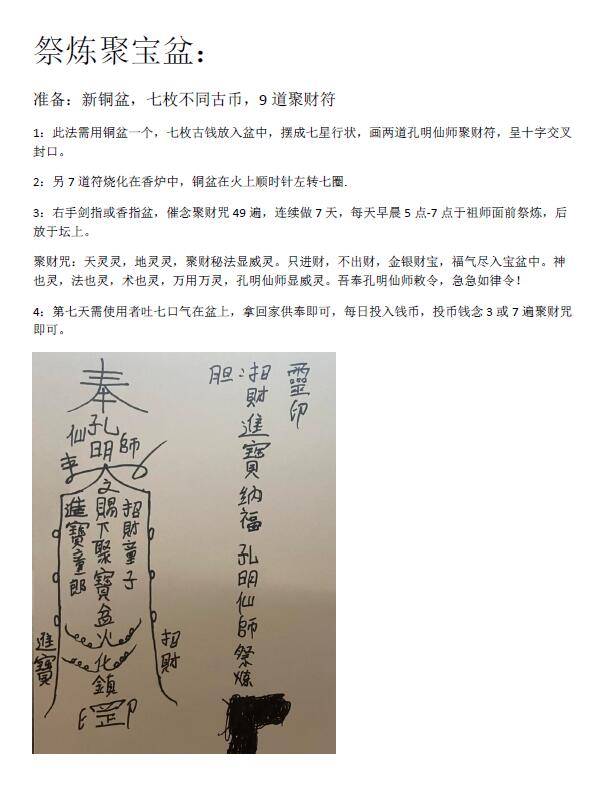 祭炼聚宝盆：
准备：新铜盆，七枚不同古币，9 道聚财符
1：此法需用铜盆一个，七枚古钱放入盆中，摆成七星行状，画两道孔明仙师聚财符，呈十字交叉
封口。
2：另 7 道符烧化在香炉中，铜盆在火上顺时针左转七圈.
3：右手剑指或香指盆，催念聚财咒 49 遍，连续做 7 天，每天早晨 5 点-7 点于祖师面前祭炼，后
放于坛上。
聚财咒：天灵灵，地灵灵，聚财秘法显威灵。只进财，不出财，金银财宝，福气尽入宝盆中。神
也灵，法也灵，术也灵，万用万灵，孔明仙师显威灵。吾奉孔明仙师敕令，急急如律令！
4：第七天需使用者吐七口气在盆上，拿回家供奉即可，每日投入钱币，投币钱念 3 或 7 遍聚财咒
即可。
靈印
胆：招財進寶納福孔明仙師祭炼
奉
孔明
仙師
招財童子
賜下聚寶盆火化鎮
進寶童郎
招財
進寶
罡印